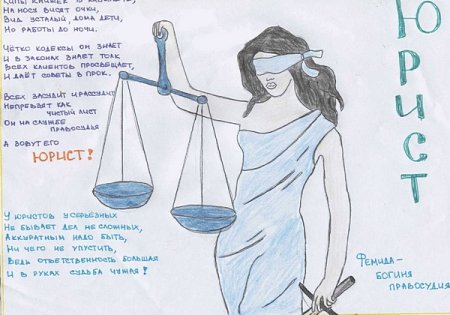 На нося висят очки,
Вид усталый, дома дети,
Но работы до ночи.
Чётко кодексы он знает
И в законах знает толк
Всех клиентов просвещает,
И даёт советы в прок.
Всех засудит и рассудит
Непредвзят как
чистый лист
Он на службе
правосудья
А зовут его
Юрист!
У юристов у серьёзных
Не бывает дел не сложных,
Аккуратным надо быть,
Ни чего не упустить,
Ведь ответственность большая
И в руках судьба чужая!
Юрист
Фемида-
богиня
правосудия